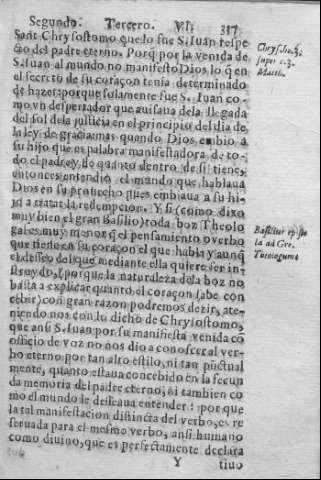 Segundo. Tercero. VI. 317
Sant Chrysostomo que lo fue S. Iuan respe
cto del padre eterno. Porq̃ por la venida de
S. Iuan al mundo no manifesto Dios lo q̃ en
el secreto de su coraçon tenia determinado
de hazer: porque solamente fue S. Iuan co-
mo vn despertador que auisaua dela llegada
del sol dela justicia en el principio del dia de
la ley de gracia: mas quando Dios embio a
su hijo que es palabra manifestadora de to-
do el padre, y de quanto dentro de si tiene,
entonces entendio el mundo que hablaua
Dios en su
a tratar la redempcion. Y si (como dixo
muy bien el gran Basilio) toda boz Theolo
gal es muy menor q̃ el pensamiento o verbo
que tiene en su coraçon el que habla y aunq̃
el desseo del que mediante ella quiere ser in
struydo, (porque la naturaleza dela boz no
basta a explicar quanto el coraçon sabe con
cebir) con gran razon podremos dezir, ate-
niendo nos con lo dicho de Chrysostomo,
que ansi S. Iuan por su manifiesta venida cõ
officio de voz no nos dio a conoscer al ver-
bo eterno por tan alto estilo, ni tan pũctual
mente, quanto estaua concebido en la fecun
da memoria del padre eterno; ni tambien co
mo el mundo le desseaua entender: porque
la tal manifestacion distincta del verbo, es re
seruada para el mesmo verbo, ansi humano
como diuino, que es perfectamente declara
Y tiuo
Chrys. ho. 3.
super c. 3.
Matth.
Basilius episto
la ad Gre.
Theologum